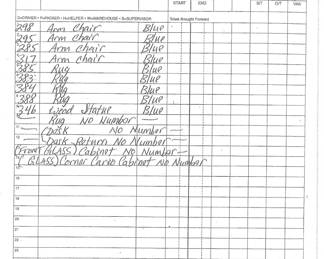 START END S/T O/T VAN
D=DRIVER P=PACKER H=HELPER W=WAREHOUSE S=SUPERVISOR Totals Brought Forward
298 Arm Chair Blue
295 Arm chair Blue
285 Arm chair Blue
317 Arm chair Blue
385 Rug Blue
383 Rug Blue
384 Rug Blue
388 Rug Blue
346 Wood Statue Blue
— Rug No Number —
— Desk No Number —
— Desk Return No Number —
(Front GLASS) Cabinet No Number —
(GLASS) Corner Curio Cabinet No Number
15
16
17
18
19
20
21
22
23